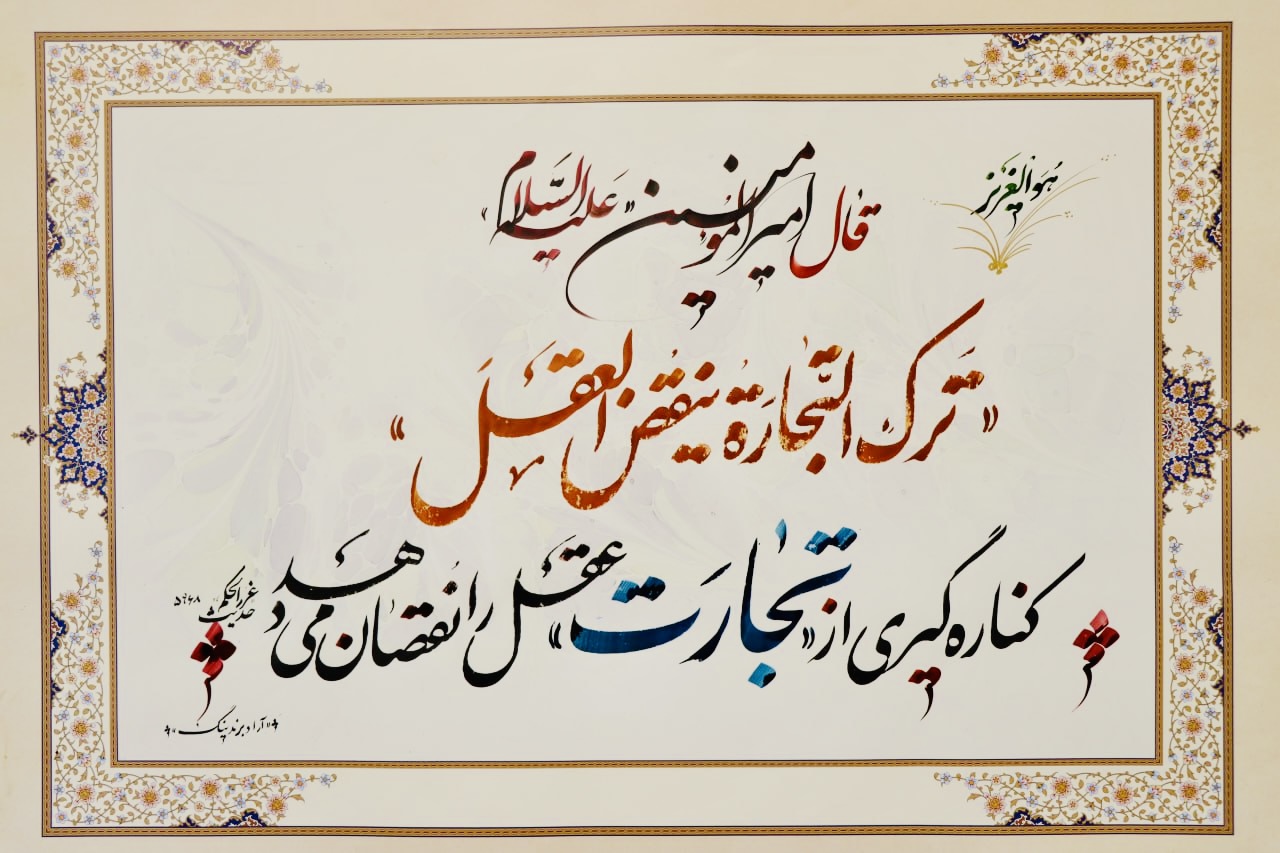 هو العزیز
قال امیرالمؤمنین «عَلیه السَّلام»
«تَرکُ التِّجارَةِ یَنقُصُ العَقلَ»
کناره گیری از «تجارَت» عقل را نقصان می دهد
غررالحکم حدیث ۵۹۶۸
«آراد برندینگ»